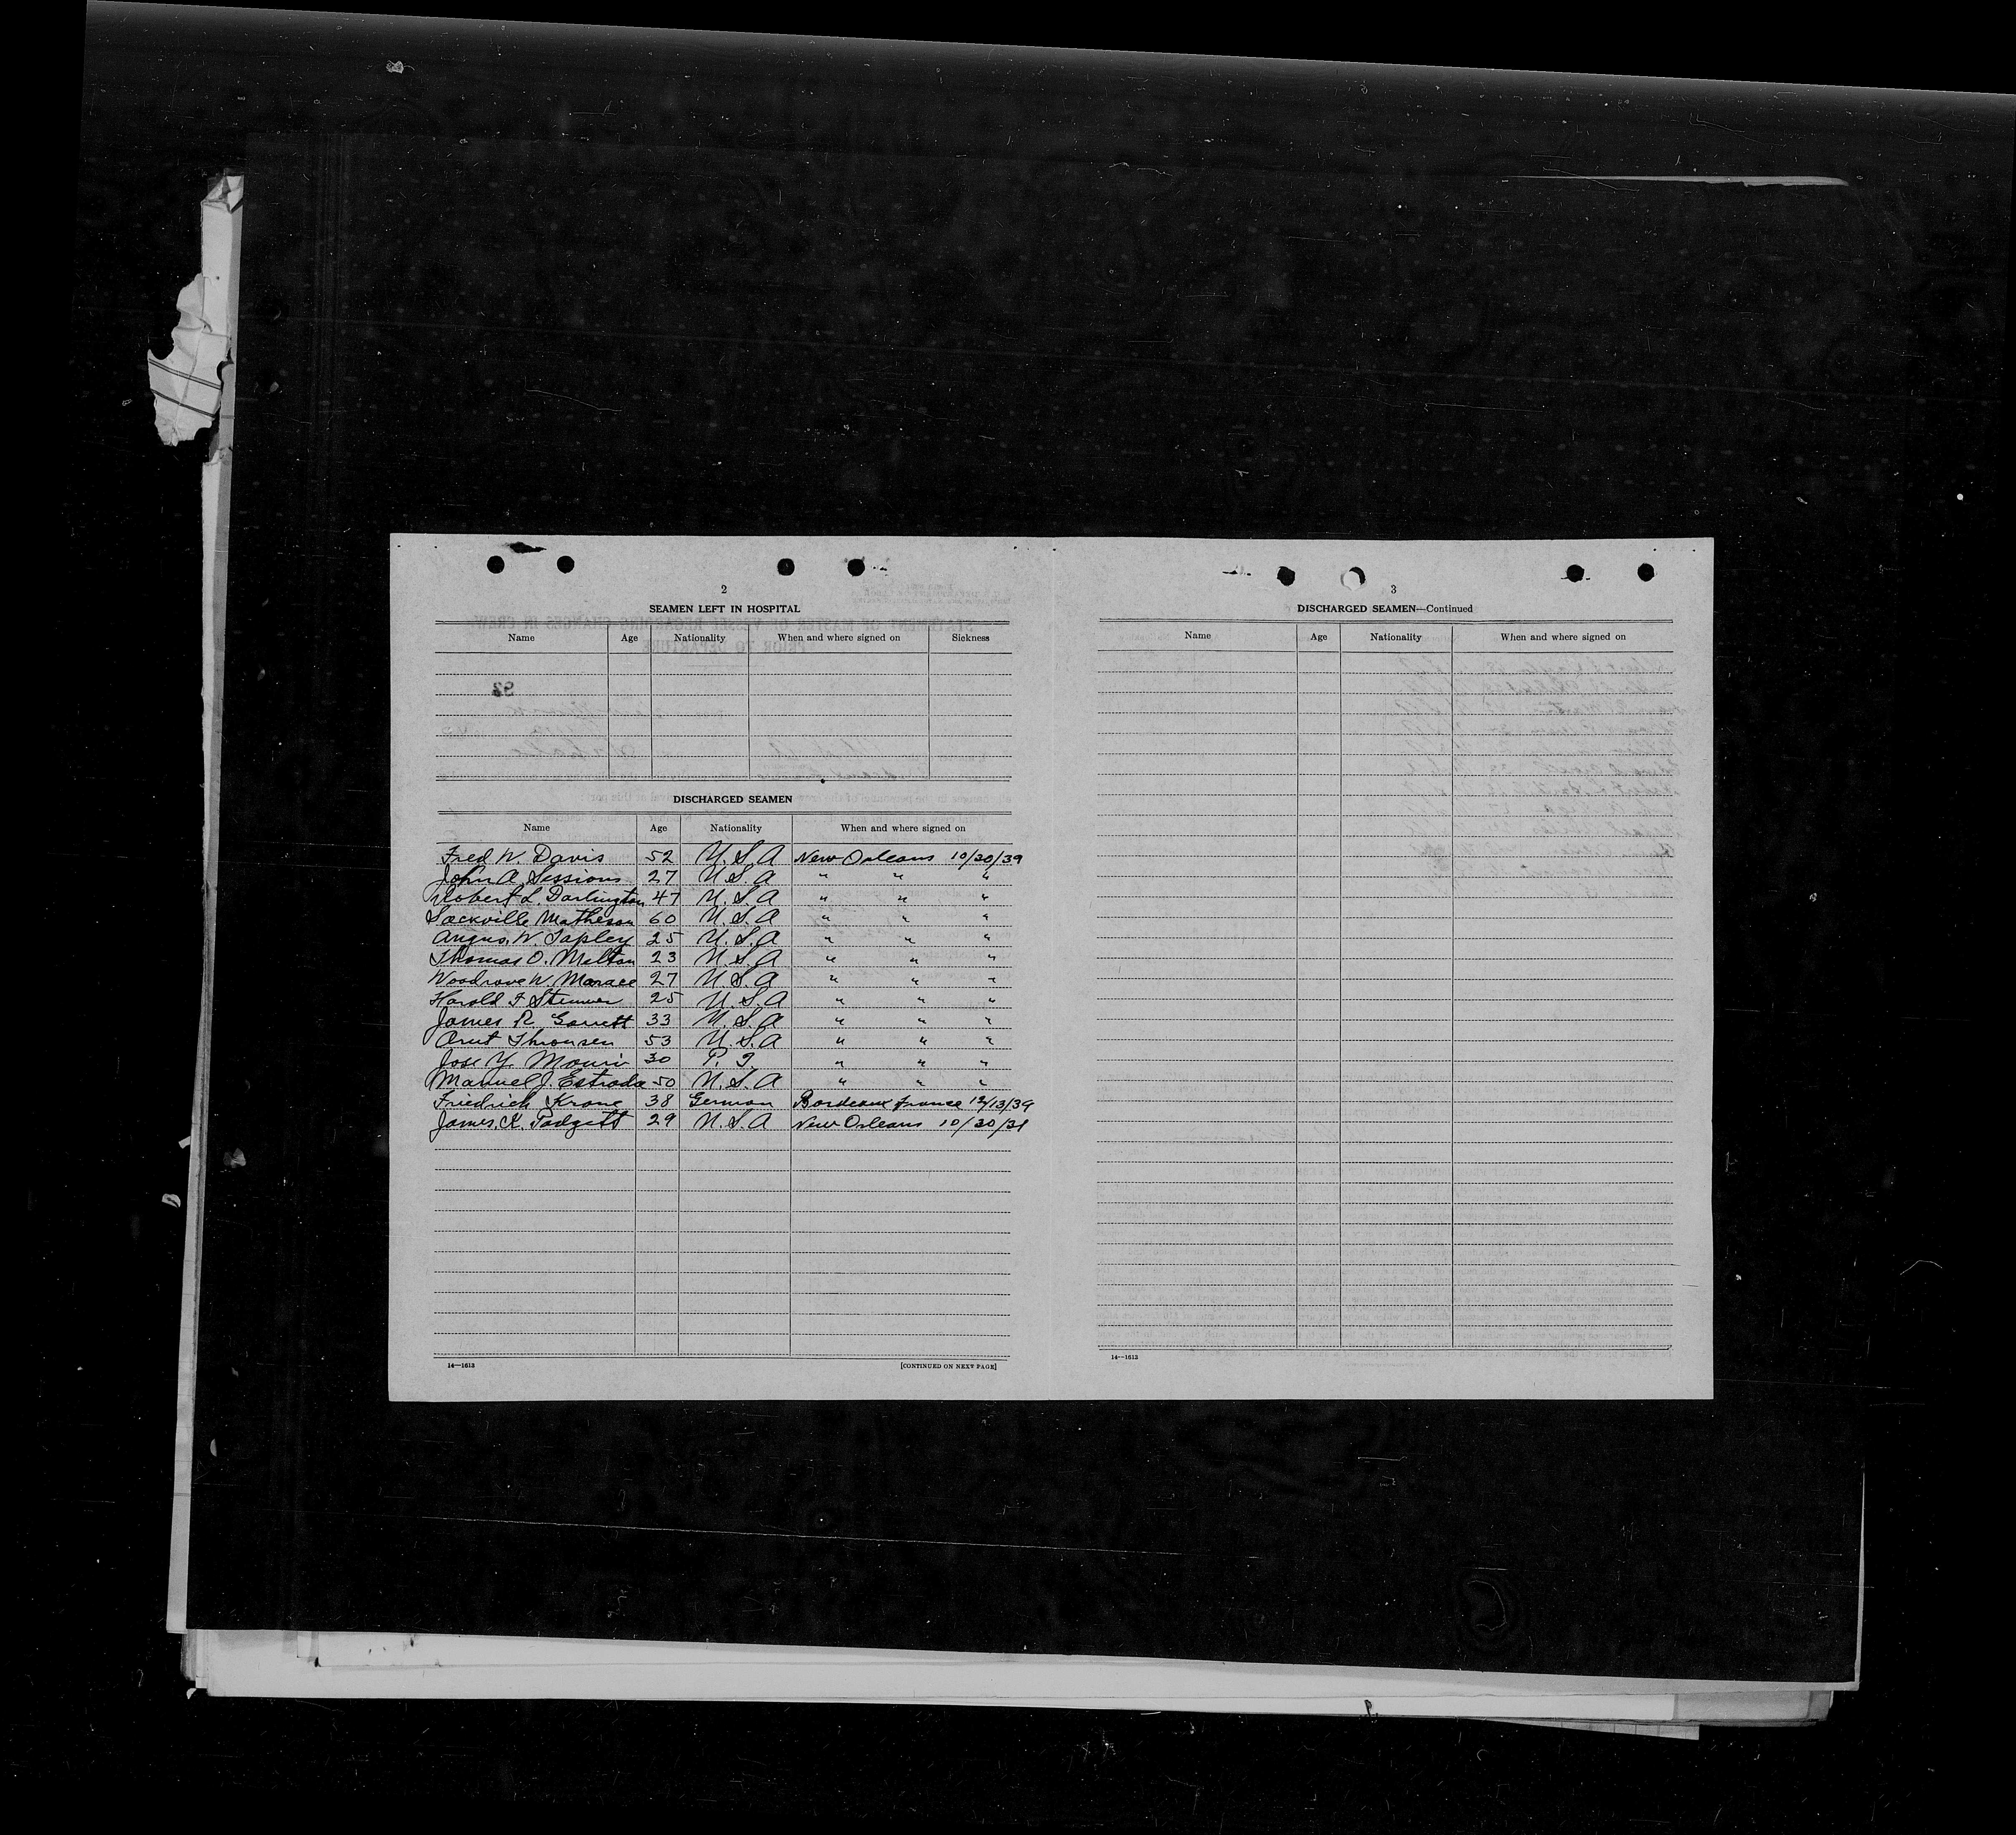 2
SEAMEN LEFT IN HOSPITAL
Name Age Nationality When and where signed on Sickness
DISCHARGED SEAMEN
Name Age Nationality When and where signed on
Fred W. Davis 52 U.S.A New Orleans 10/30/39
John A. Sessions 27 U.S.A " " "
Robert L. Darlington 47 U.S.A " " "
Sackville Matheson 60 U.S.A " " "
Angus W. Tapley 25 U.S.A " " "
Thomas O. Melton 23 U.S.A " " "
Woodrove W. 27 U.S.A " " "
Harold F. 25 U.S.A " " "
James R. Garrett 33 U.S.A " " "
Thronsen 53 U.S.A " " "
Jose Y. 30 P.I. " " "
Manuel J. Estrada 50 U.S.A " " "
Friedrich Krone 38 German Bordeaux France 12/13/39
James K. Padgett 29 U.S.A New Orleans 10/30/39
14—1613 [CONTINUED ON NEXT PAGE]
3
DISCHARGED SEAMEN—Continued
Name Age Nationality When and where signed on
14—1613